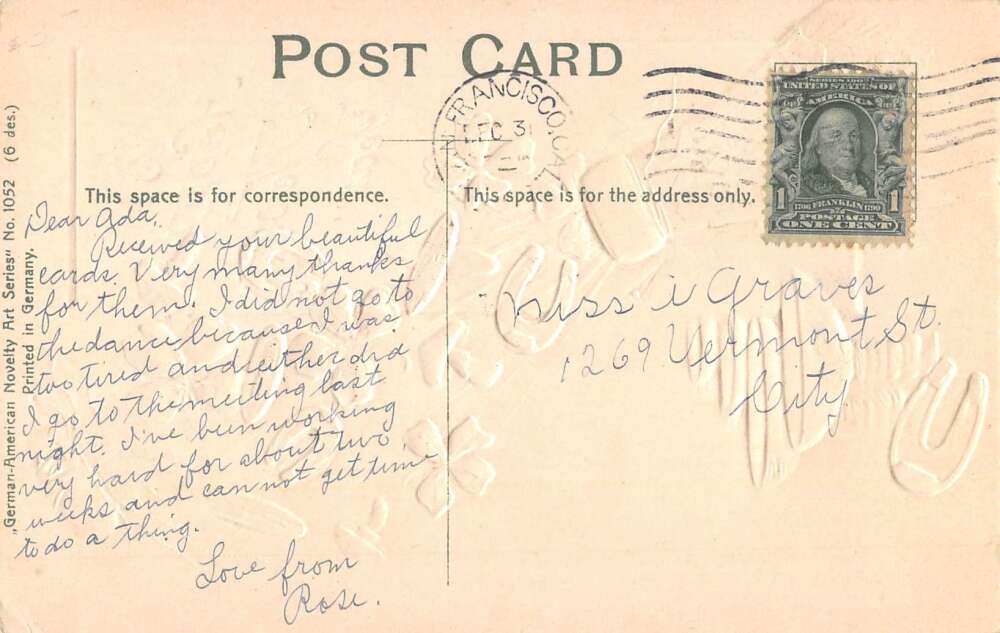 POST CARD
SAN FRANCISCO, CAL.
DEC 31
SERIES 1902
UNITED STATES OF
AMERICA
1 1
1706 FRANKLIN 1790
POSTAGE
ONE CENT
„German-American Novelty Art Series" No. 1052 (6 des.)
Printed in Germany.
This space is for correspondence.
Dear Ada,
Received your beautiful
cards. Very many thanks
for them. I did not go to
the dance because I was
too tired and either did
I go to the meeting last
night. I've been working
very hard for about two
weeks and can not get time
to do a thing.
Love from
Rose.
This space is for the address only.
Miss A Graves
1269 Vermont St.
City